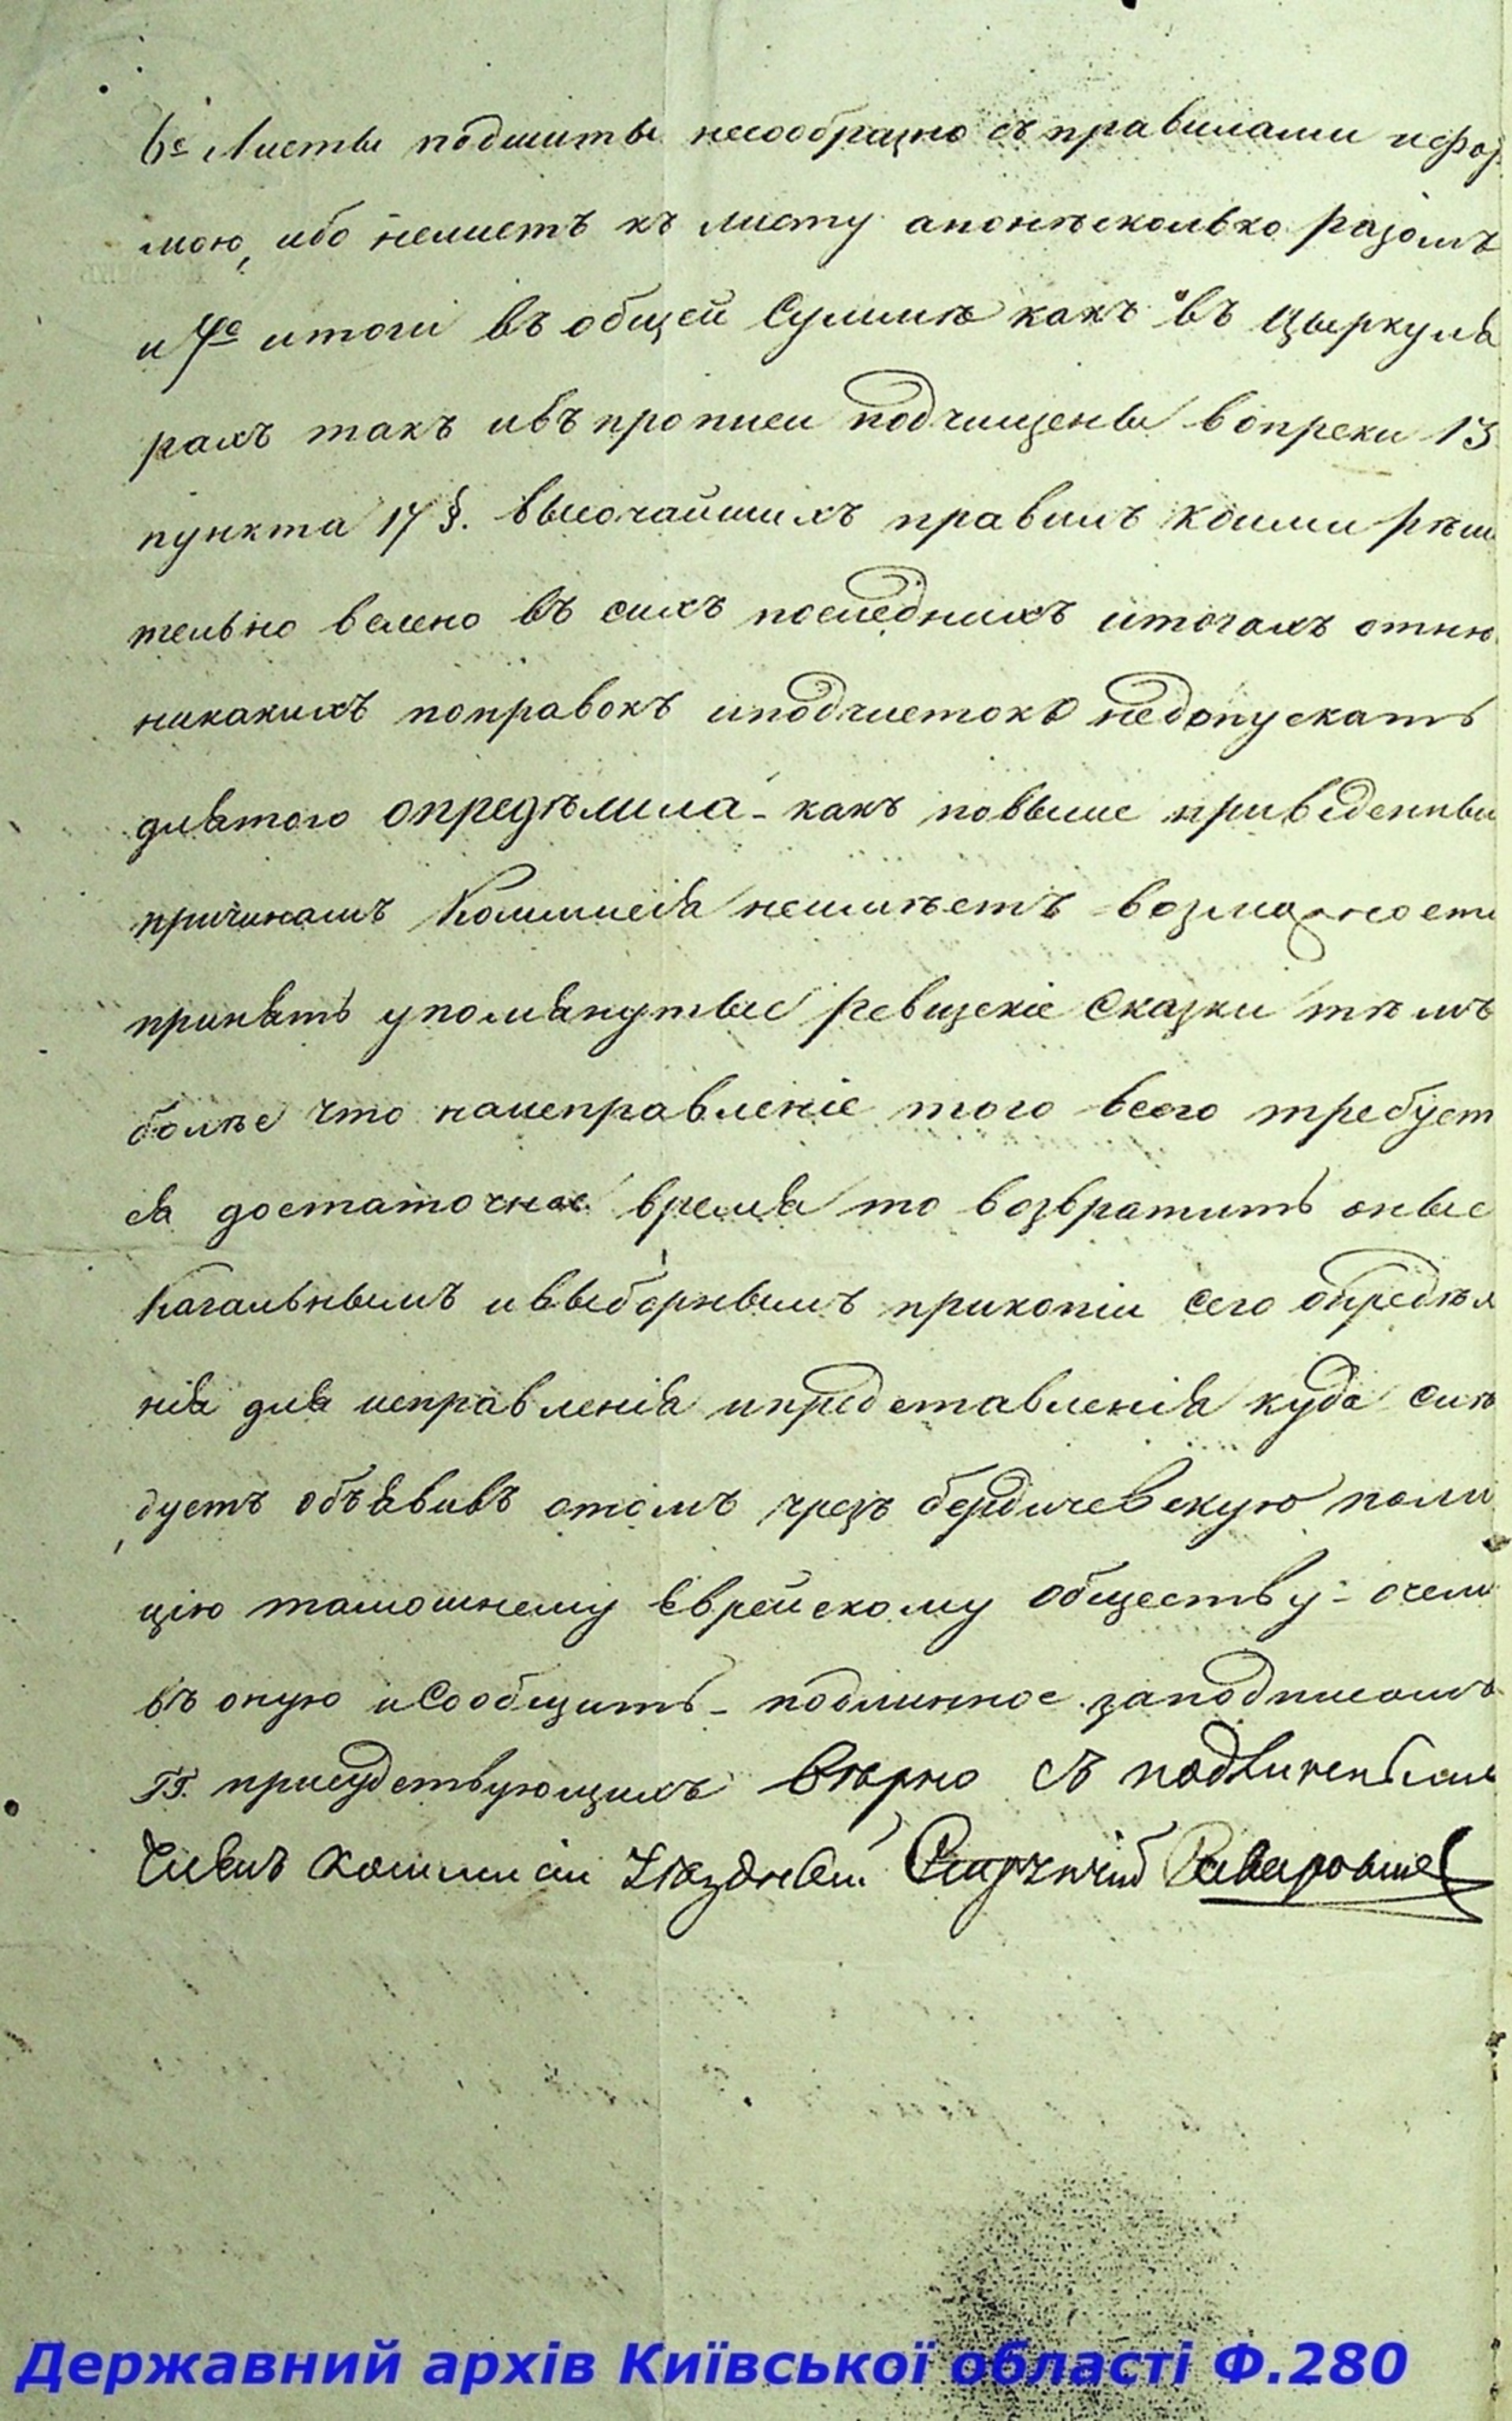 6е Листы подшиты несообразно съ правилами и фор
мою, ибо нелистъ къ листу апонѣсколько разомъ
и 7е итоги въ общей Суммѣ какъ въ цыркуля
рахъ такъ ивъ прописи подчищены вопреки 13
пункта 17 §. высочайшихъ правилъ коими рѣши
тельно велено въ сихъ последнихъ итогахъ отню
никакихъ поправокъ иподчистокъ недопускать
длятого опредѣлила - какъ повыше приведенны
причинамъ Коммисія неимѣетъ возможности
принять упомянутые ревизскіе сказки тѣмъ
болѣе что наисправленіе того всего требует
ся достаточное время то возвратить оные
Кагальнымъ и выборнымъ прикопіи сего опредѣл
нія для исправленія ипредставленія куда слѣ
дуетъ объявивъ отомъ чрезъ бердичевскую поли
цію тамошнему Еврейскому обществу - очем
въ оную иСообщить - подлинное заподписомъ
ГГ. присудствующихъ Вѣрно съ подлиннымъ
Членъ Коммисіи Уѣздный
Державний архів Київської області Ф.280